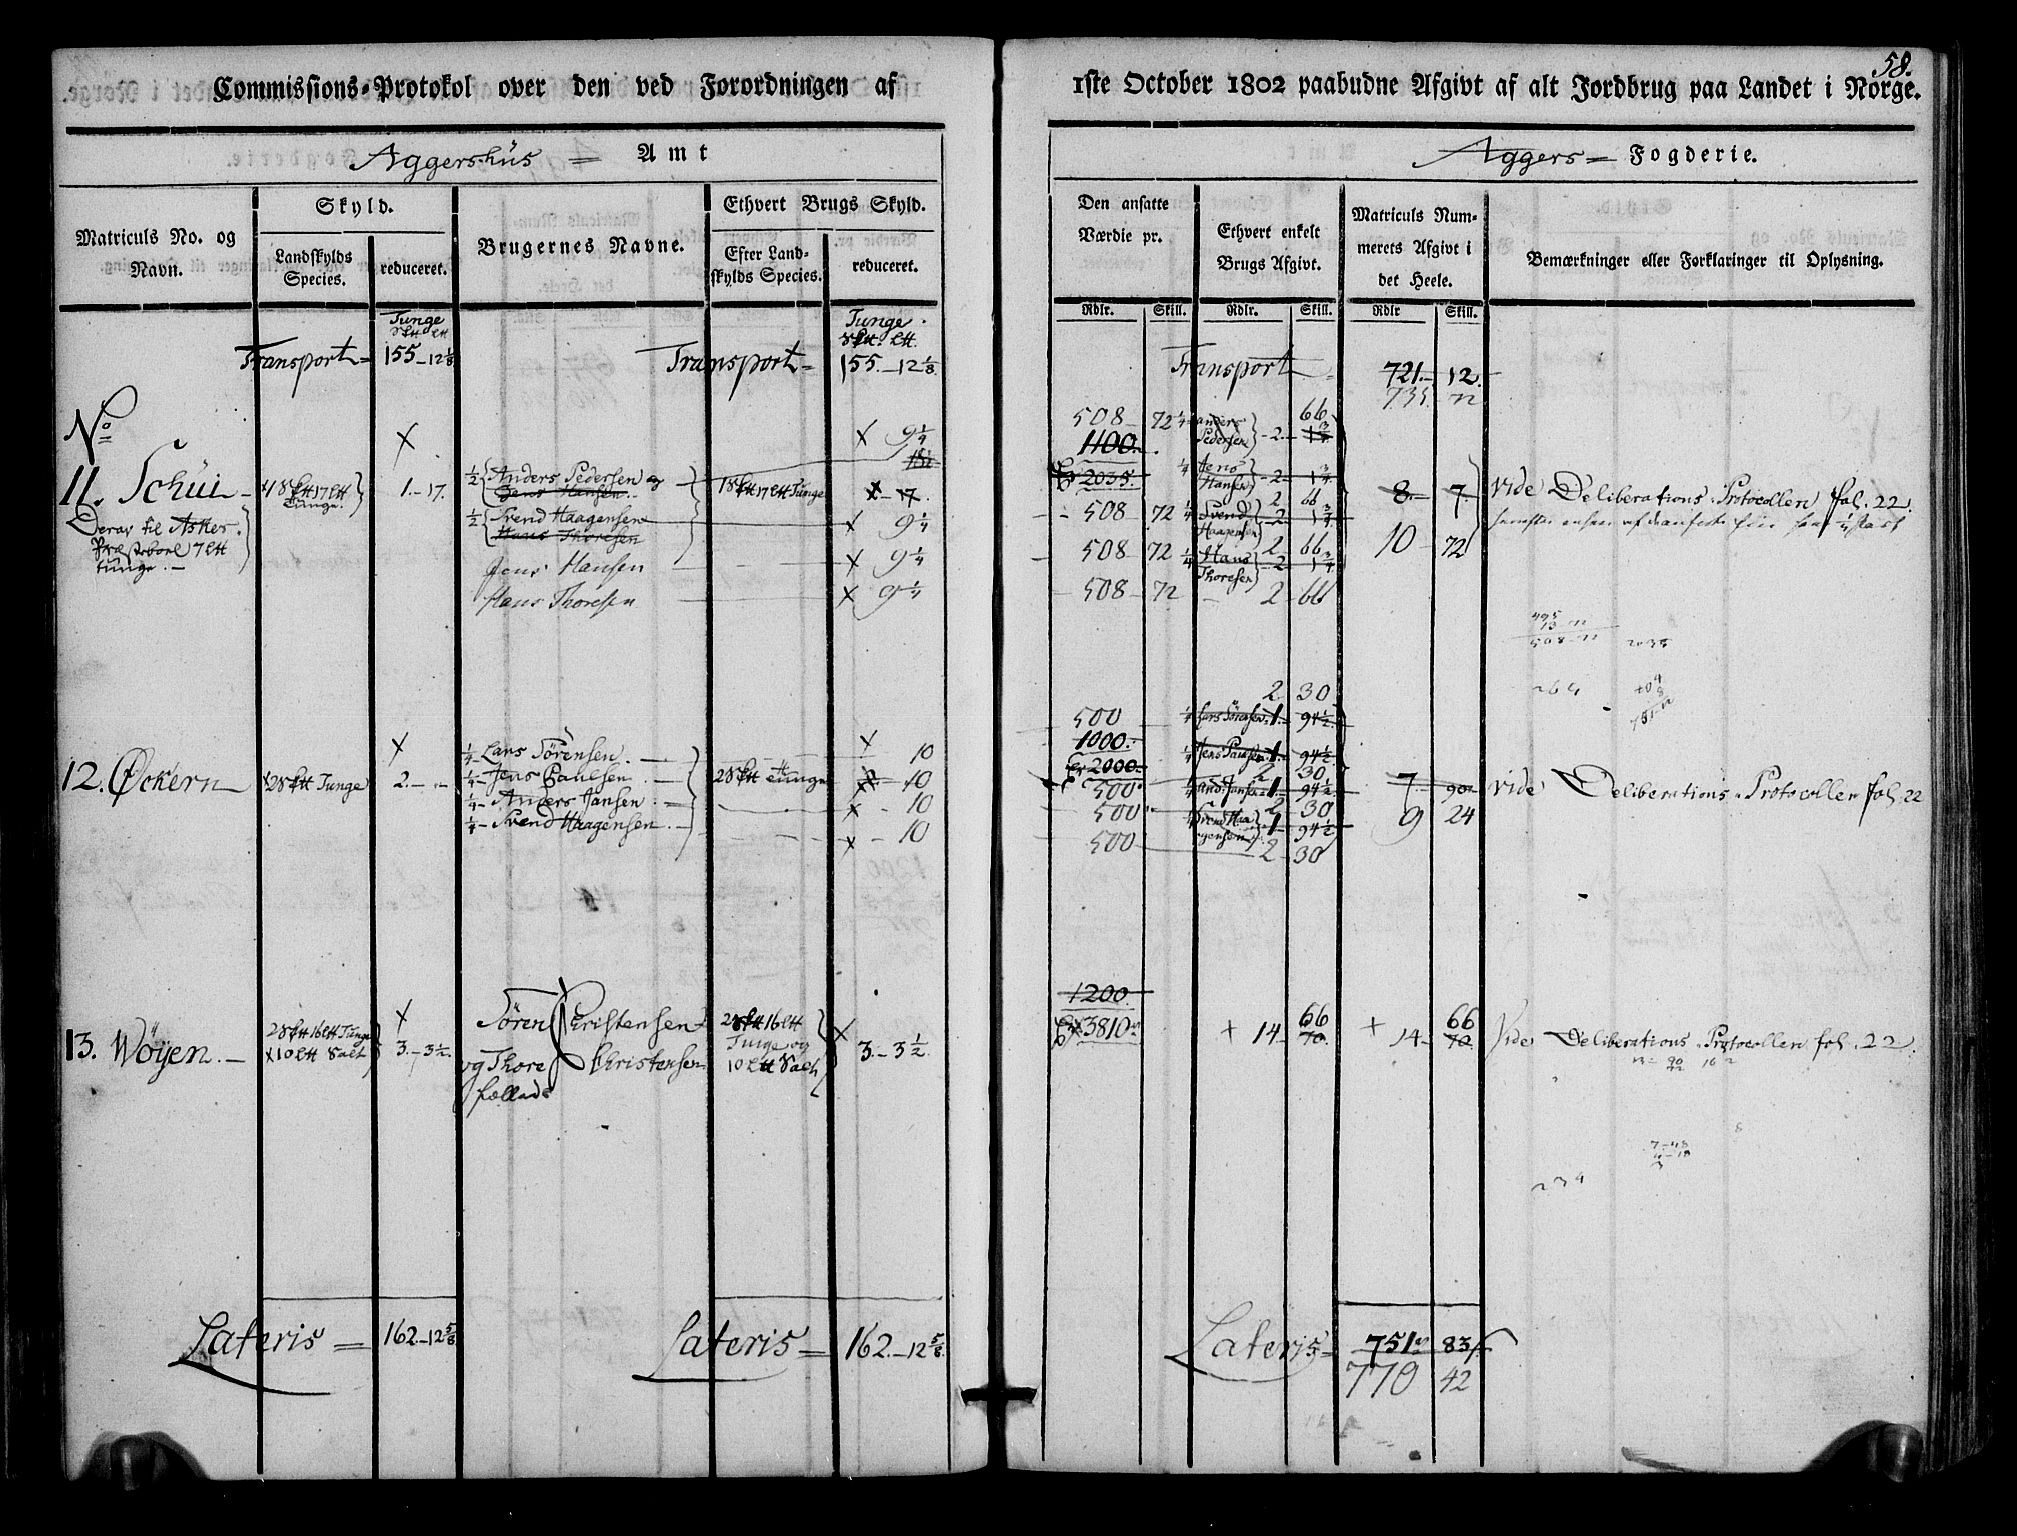 58.
Commissions-Protokol over den ved Forordningen af 1ste October 1802 paabudne Afgivt af alt Jordbrug paa Landet i Norge.
Aggershüs = Amt
Aggers = Fogderie.
Matriculs No. og Navn.
Skyld.
Landskylds Species.
reduceret.
Brugernes Navne.
Ethvert Brugs Skyld.
Efter Landskylds Species.
reduceret.
Den ansatte Værdie pr.
Ethvert enkelt Brugs Afgivt.
Matriculs Nummerets Afgivt i det Heele.
Bemærkninger eller Forklaringer til Oplysning.
Rdlr. Skill. Rdlr. Skill. Rdlr Skill.
Tunge
Tunge
Transport = 155 - 12 1/8 Transport = 155 - 12 1/8 Transport 721 - 12
735 - 72
No
11. Schüi - 1 - 17.
Deraf til Asker Præsteboel 7 Tunge. -
1/2 Anders Pedersen og
Jens Hansen.
1/2 Svend Haagensen
Hans Thoresen
Jens Hansen
Hans Thoresen
X 9 1/4
X - 17.
X 9 1/4
X 9 1/4
X 9 1/4
508 - 72 1/4 Anders Pedersen - 2 - 66
1100.
2035. 1/4 Jens Hansen - 2 - 1 3/4
508 72 1/4 Svend Haagensen 2 66
508 72 1/4 Hans Thoresen 2 66
508 - 72 - 2 - 66
8 - 7.
10 - 72
vide Deliberations Protocollen fol. 22.
508
2035
264
12. Öckern 2 Tunge 2. - " -
1/4 Lars Sörensen. - 10
1/4 - Jens Paulsen - 10
1/4 - Anders Jansen - 10
1/4 - Svend Haagensen. - 10
2 30
500 1/4 Lars Sörensen 1 - 94 1/2
1000. 1/4 Jens Paulsen 1 - 94 1/2
2000 2 30
500 And. Jansen 1 - 94 1/2
500 2 30
Svend Haagensen 1 - 94 1/2
500 2 - 30
7 - 90
9 24
vide Deliberations - Protocollen fol. 22
13. Wöyen. - 3. - 3 1/2.
Sören Christensen
og Thore Christensen
fællads
16
Tunge og
10 Salt
3. - 3 1/2.
1200.
3810
+ 14 - 66
70.
+ 14 - 66
70.
Vide Deliberations - Protocollen fol. 22.
234
Lateris = 162. - 12 5/8 Lateris = 162. - 12 5/8. Lateris = 751 83
770 42